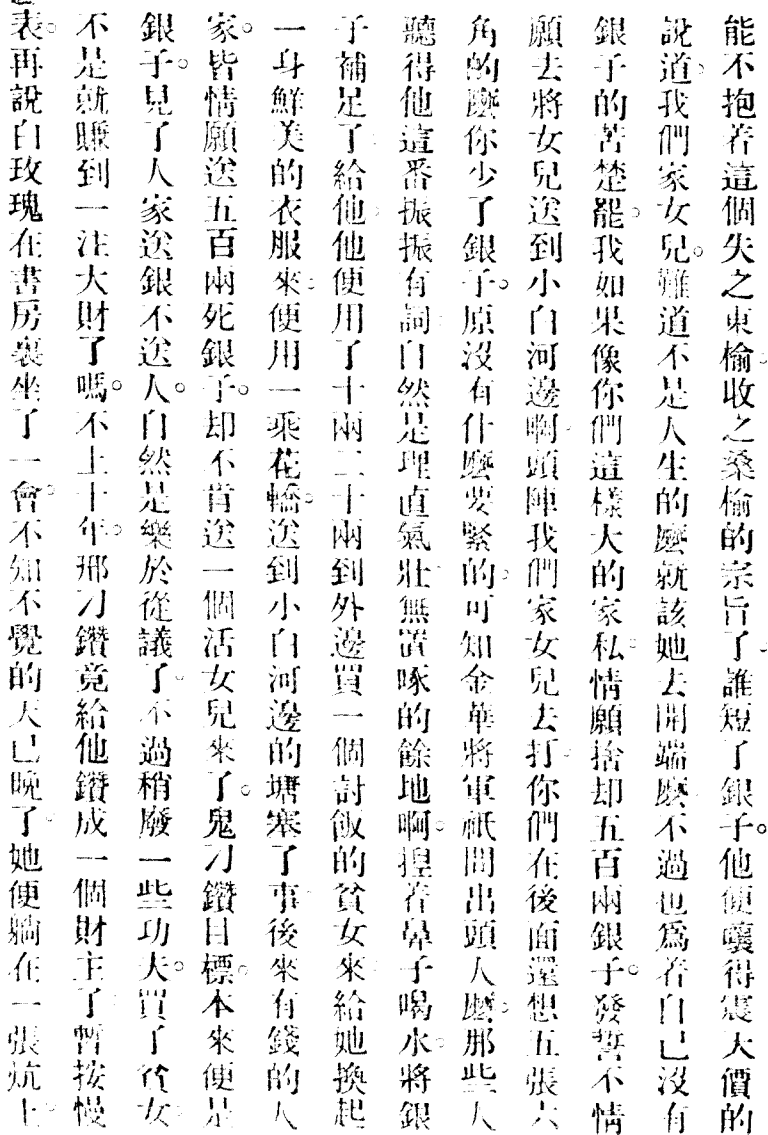 能不抱着這個失之東榆。收之桑榆的宗旨了。誰短了銀子。他便嚷得震大價的
說道。我們家女兒。難道不是人生的麽就該她去開端麽。不過也爲着自己沒有
銀子的苦楚。罷我如果像你們這樣大的家私。情願捨却五百兩銀子。發誓不情
願去將女兒送到小白河邊啊。頭陣我們家女兒去打。你們在後面還想五張六
角的麽你少了銀子。原沒有什麽要緊的。可知金華將軍祇問出頭人麽。那些人
聽得他這番振振有詞。自然是理直氣壯無置啄的餘地啊。揑着鼻子喝水。將銀
子補足了。給他。他便用了十兩二十兩到外邊買一個討飯的貧女來。給她換起
一身鮮美的衣服來。便用一乘花轎。送到小白河邊的塘塞了事。後來有錢的人
家。皆情願送五百兩死銀子。却不肯送一個活女兒來了。鬼刁鑽目標。本來便是
銀子。見了人家送銀不送人。自然是樂於從議了。不過稍廢一些功夫。買了貧女。
不是就賺到一注大財了嗎。不上十年。那刁鑽竟給他鑽成一個財主了。暫按慢
表。再說白玫瑰在書房裏坐了一會。不知不覺的天已晚了。她便躺在一張炕上。